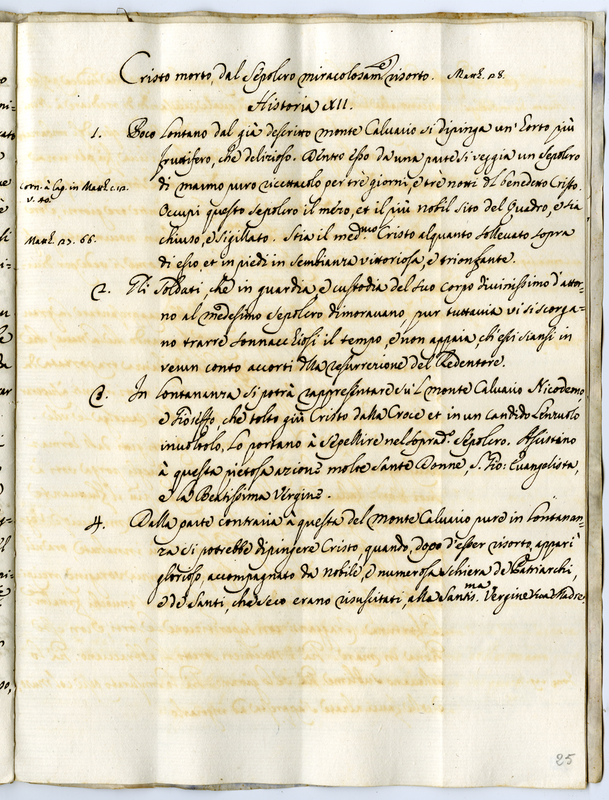 Cristo morto, dal Sepolcro miracolosam.e risorto. Matth. 28.
Historia XII.
1. Poco lontano dal già descritto monte Calvario si dipinga un' horto più
fruttifero, che delizioso. Dentro esso da una parte si veggia un sepolcro
Corn. à Lap. in Matth. c. 12.
v. 40.
di marmo puro ricettacolo per trè giorni, e trè notti del benedetto Cristo.
Occupi questo sepolcro il mezo, et il più nobil sito del Quadro, e sia
Matth. 27. 66.
chiuso, e sigillato. Stia il med.mo Cristo alquanto sollevato sopra
di esso, et in piedi in sembianza vittoriosa, e trionfante.
2. Gli Soldati, che in guardia e custodia del suo corpo divinissimo d'attor-
no al medesimo sepolcro dimoravano, pur tuttavia vi si scorga-
no trarre sonnacchiosi il tempo, e non appaia ch'essi siansi in
verun conto accorti della resurrezione del Redentore.
3. In lontananza si potrà rappresentare su'l monte Calvario Nicodemo,
e Gioseffo, che tolto giù Cristo dalla Croce et in un candido lenzuolo
involtolo, lo portano à sepellire nel soprad.o sepolcro. Assistano
à questa pietosa azione molte Sante Donne, S. Gio: Evangelista,
e la Beatissima Vergine.
4. Dalla parte contraria à questa del monte Calvario pure in lontanan-
za si potrebbe dipingere Cristo, quando, dopo d'esser risorto, apparì
glorioso, accompagnato da nobile, e numerosa schiera de Patriarchi,
e de Santi, che seco erano risuscitati, alla Santis.ma Vergine sua Madre.
25